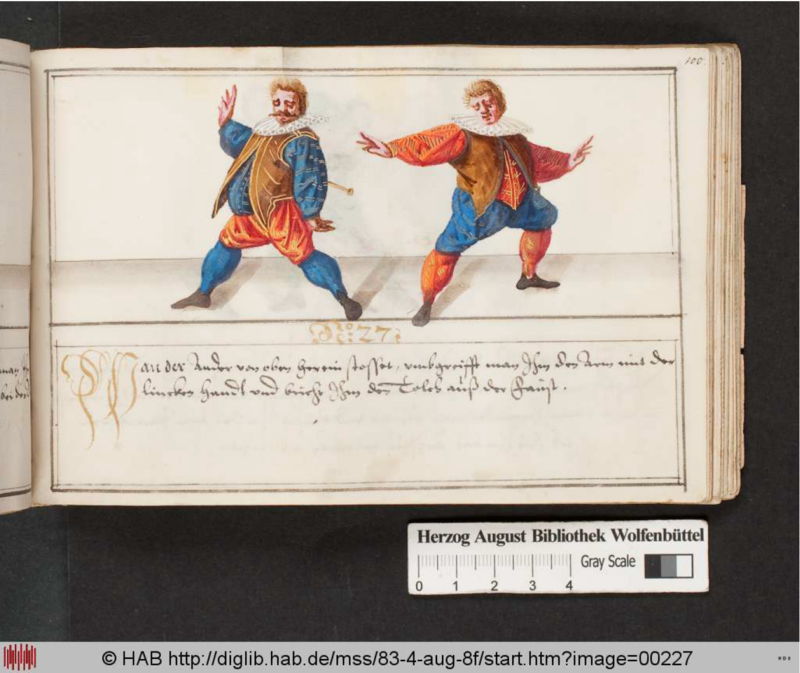 100.
No: 27:
Wan der Ander von oben herein stosset, umbgreifft man Ihm den Arm mit der
lincken Handt und bricht Ihm den Tolch auß der Faust.
Herzog August Bibliothek Wolfenbüttel
Gray Scale
0 1 2 3 4
© HAB http://diglib.hab.de/mss/83-4-aug-8f/start.htm?image=00227